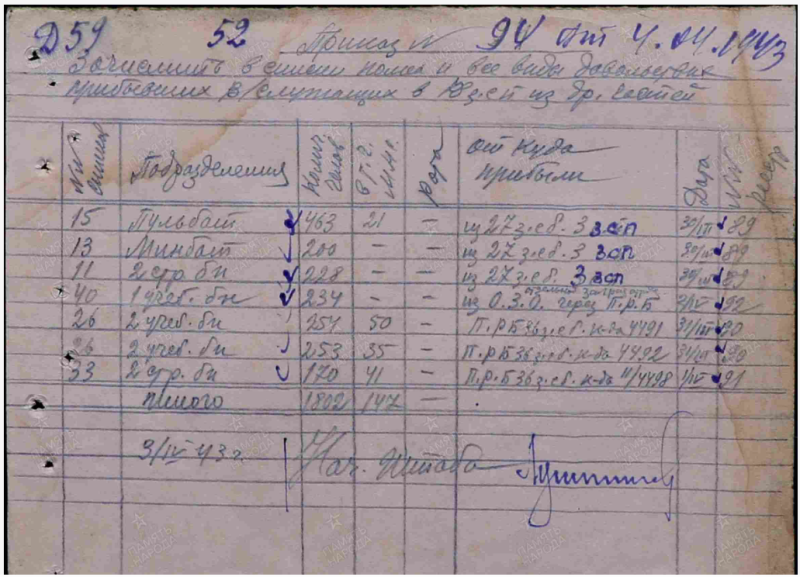 Д 59 52 Приказ № 94 от 4.04.1943
Зачислить в списки полка и все виды довольствия
прибывших в/служащих в 3 зсп из др. частей
№№ списка Подразделения Колич. челов. в т.ч. Рота От куда прибыли Дата №№ реестр
15 Пульбат 463 21 — из 27 з.сб. 3 зсп 30/III 89
13 Минбат 200 — — из 27 з.сб. 3 зсп 30/III 89
11 2 стр. бн 228 — — из 27 з.сб. 3 зсп 30/III 89
40 1 учеб. бн 234 — — из О.З.О. через П.Р.Б 2/IV 92
26 2 учеб. бн 254 50 — П.Р.Б 36 з.сб. к-да 4491 31/III 90
26 2 учеб. бн 253 35 — П.Р.Б 36 з.сб. к-да 4492 31/III 90
33 2 стр. бн 170 41 — П.Р.Б 36 з.сб. к-да 11/4498 1/IV 91
Итого 1802 147
3/IV 43 г. Нач. Штаба